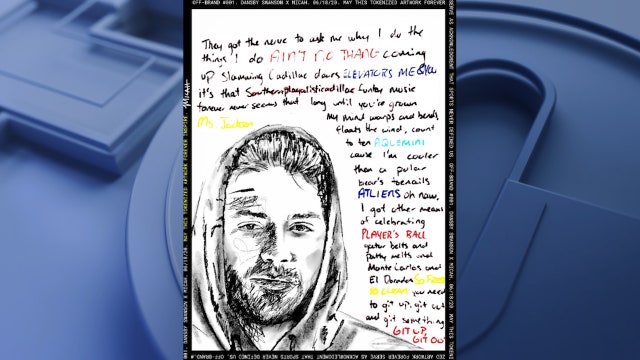 OFF-BRAND #001. DANSBY SWANSON X MICAH. 06/18/20. MAY THIS TOKENIZED ARTWORK FOREVER
SERVE AS ACKNOWLEDGMENT THAT SPORTS NEVER DEFINED US. OFF-BRAND #001. DANSBY SWANSON X MICAH. 06/18/20. MAY THIS TOKEN
They got the nerve to ask me why I do the
things I do AIN'T NO THANG coming
up Slamming Cadillac doors ELEVATORS ME & YOU
it's that Southernplayalisticadillac funky music
forever never seems that long until you're grown
Ms. Jackson
My mind warps and bends
floats the wind, count
to ten AQUEMINI
cause I'm cooler
than a polar
bear's toenails
ATLIENS oh now,
I got other means
of celebrating
PLAYER'S BALL
gator belts and
patty melts and
Monte Carlos and
El Dorados SO FRESH
SO CLEAN you need
to git up, git out
and git something
GIT UP,
GIT OUT
MICAH